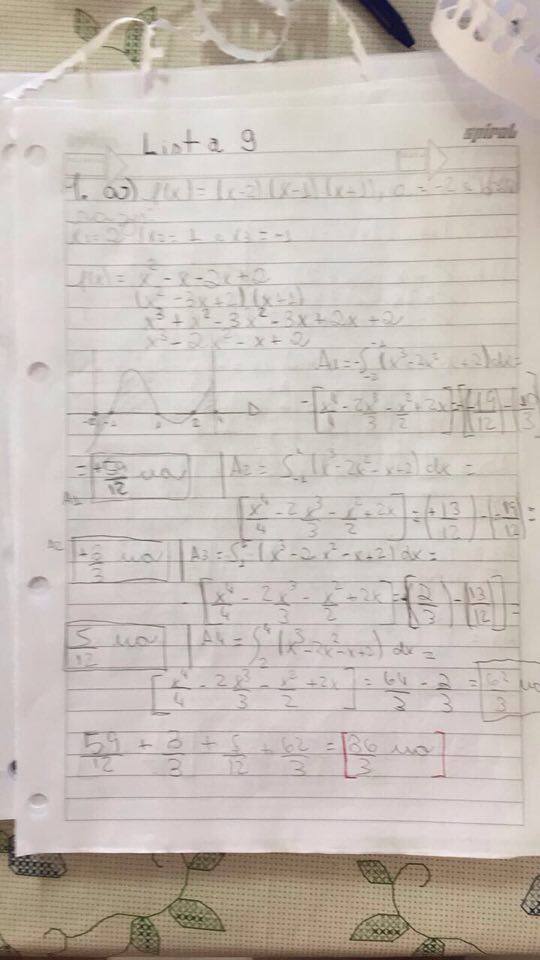 Lista 9
spiral
1. a) f(x) = (x-2)(x-1)(x+1), a = -2 e
x1=2 x2=1 e x3=-1
f(x) = x² - x - 2x + 2
(x² - 3x + 2)(x+1)
x³ + x² - 3x² - 3x + 2x + 2
x³ - 2x² - x + 2
A1 = -∫ (x³ - 2x² - x + 2) dx =
-[x⁴/4 - 2x³/3 - x²/2 + 2x] =
= 59/12 ua | A2 = ∫ (x³ - 2x² - x + 2) dx =
[x⁴/4 - 2x³/3 - x²/2 + 2x] = (+13/12) - (-19/12) =
ua | A3 = ∫ -(x³ - 2x² - x + 2) dx =
-[x⁴/4 - 2x³/3 - x²/2 + 2x] = (2/3) - (13/12) =
5/12 ua | A4 = ∫ (x³ - 2x² - x + 2) dx =
[x⁴/4 - 2x³/3 - x²/2 + 2x] = 64/3 - 2/3 = 62/3 ua
59/12 + 3/3 + 5/12 + 62/3 = [86/3 ua]